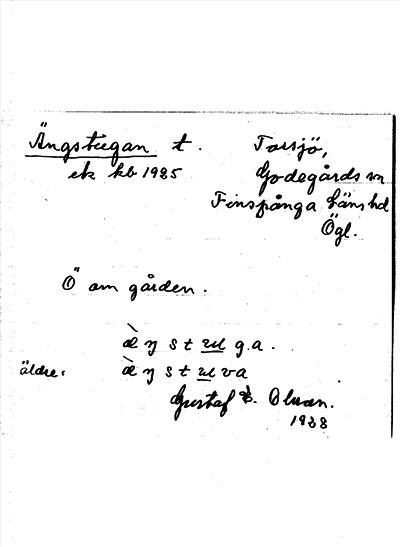 Ängstugan t. Torsjö,
ek kb 1925 Godegårds sn
Finspånga läns hd
Ögl.
Ö om gården.
æ̀ ŋ s t ɯ g a.
äldre: æ̀ ŋ s t ɯ v a
Gustaf Olson.
1938